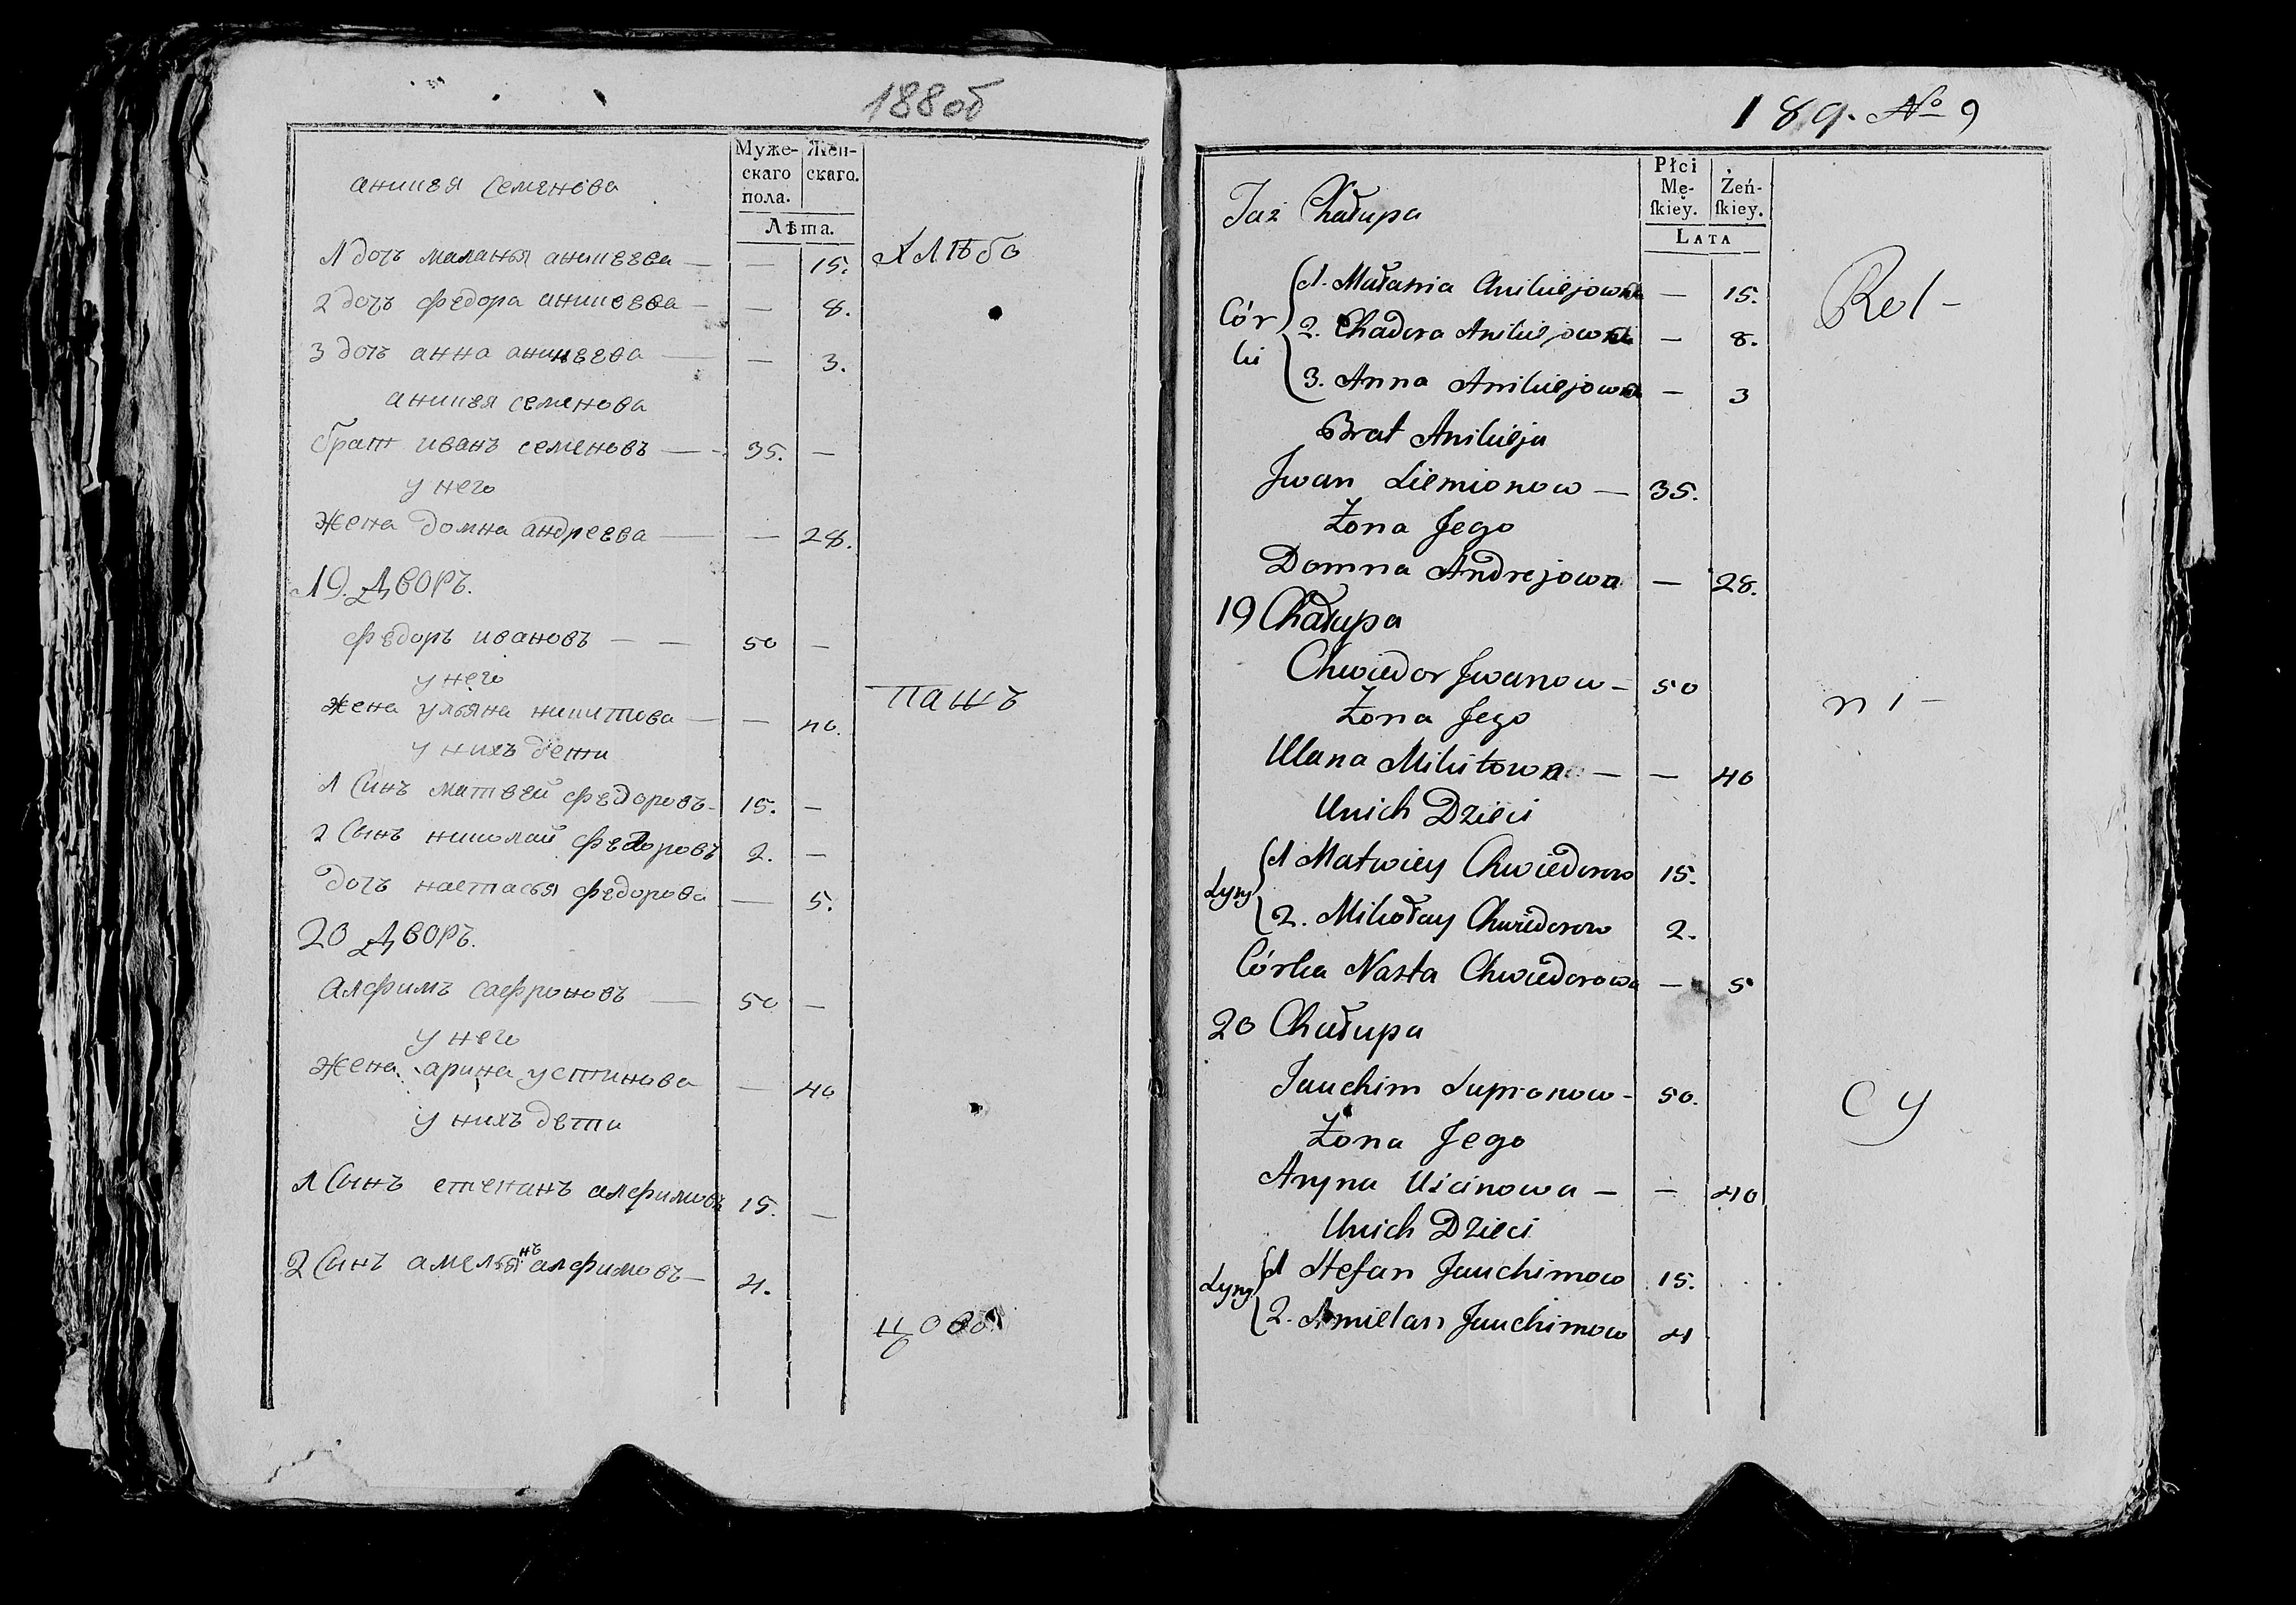 188об
Муже-
скаго
пола.
Жен-
скаго.
Лѣта.
аникея семенова
1 дочъ маланья аникеева — — 15. хлѣбо
2 дочъ федора аникеева — — 8.
3 дочъ анна аникеева — — 3.
аникея семенова
братъ иванъ семеновъ — 35. —
у него
жена домна андреева — — 28.
19. Дворъ.
федоръ ивановъ — — 50 —
у него
жена ульяна никитова — — 40. пашъ
у нихъ дети
1 Синъ матвей федоровъ 15. —
2 Сынъ николай федоровъ 2. —
дочъ настасья федорова — 5.
20 Дворъ.
алфимъ сафроновъ — 50 —
у него
жена арина устинова — 40
у нихъ дети
1 Сынъ степанъ алфимовъ 15. —
2 Сынъ амельянъ алфимовъ — 4.
189. № 9
Płci
Mę-
skiey.
Żeń-
skiey.
LATA
Taż Chałupa
Córki
1. Małania Anikiejowna — 15. Rol-
2. Chadora Anikiejowna — 8.
3. Anna Anikiejowna — 3
Brat Anikieja
Jwan Siemionow — 35.
Żona Jego
Domna Andrejowa — 28.
19 Chałupa
Chwiedor Jwanow — 50 ni-
Żona Jego
Ulana Mikitowa — — 40
Unich Dzieci
Syny
1 Matwiey Chwiedorow 15.
2. Mikołay Chwiedorow 2.
Córka Nasta Chwiedorowa — 5
20 Chałupa
Jauchim Supronow — 50. cy
Żona Jego
Aryna Uścinowa — — 40
Unich Dzieci
Syny
1 Stefan Jauchimow 15.
2. Amillan Jauchimow 4